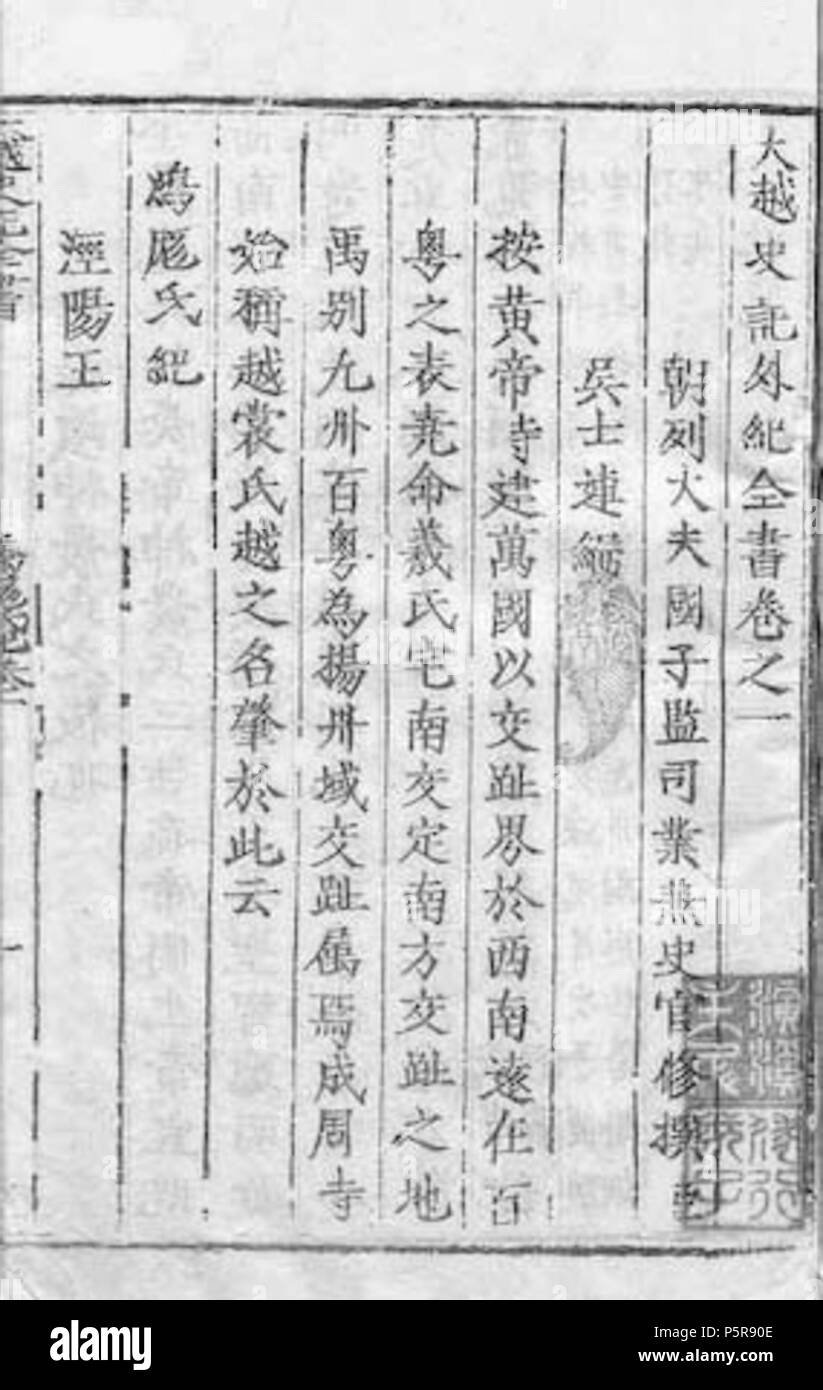 大越史記外紀全書卷之一
朝列大夫國子監司業兼史官修撰臣
吳士連編
按黄帝時建萬國以交趾界於西南遠在百
粵之表堯命羲氏宅南交定南方交趾之地
禹别九州百粵為揚州域交趾屬焉成周時
始稱越裳氏越之名肇於此云
鴻厖氏紀
涇陽王
alamy
alamy
Image ID: P5R90E
www.alamy.com